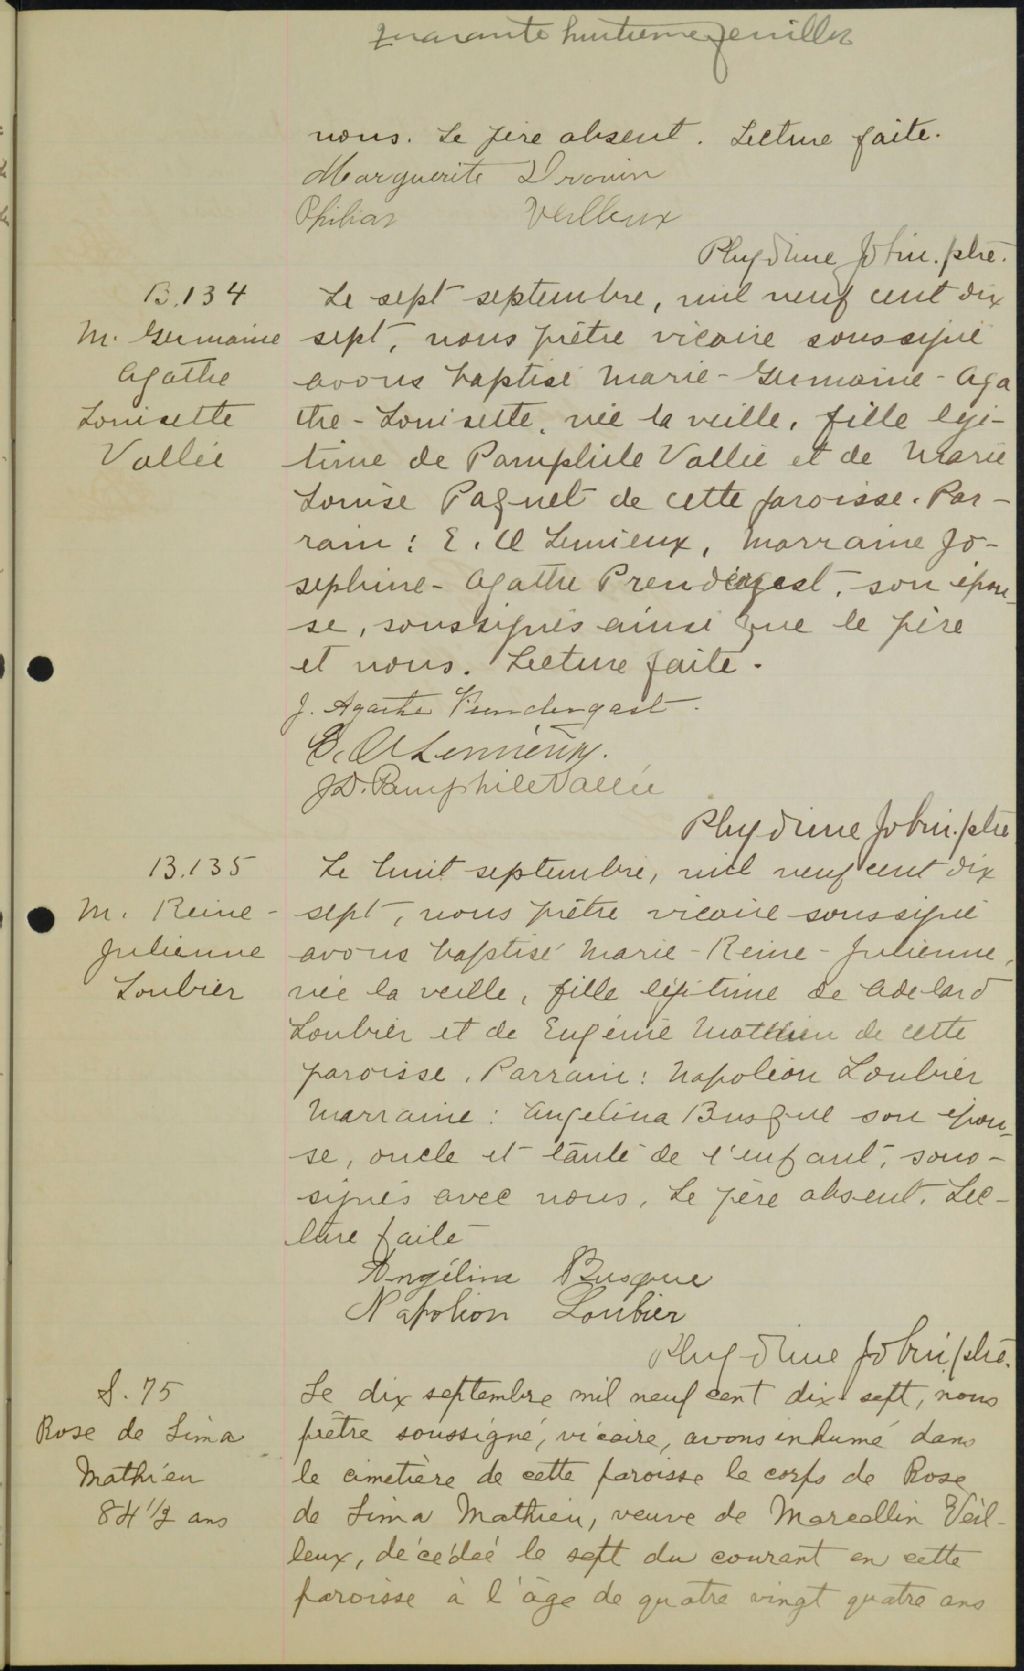 Quarante huitieme feuillet
nous. Le père absent. Lecture faite.
Marguerite Drouin
Philias Veilleux
Phydime Jobin. ptre.
B.134
M. Germaine
Agathe
Louisette
Vallée
Le sept septembre, mil neuf cent dix
sept, nous prêtre vicaire soussigné
avons baptisé Marie-Germaine-Aga
the-Louisette, née la veille, fille légi-
time de Pamphile Vallée et de Marie
Louise Paquet de cette paroisse. Par-
rain: E. A Lemieux, Marraine Jo-
sephine-Agathe Prendergast, son épou-
se, soussignés ainsi que le père
et nous. Lecture faite.
J. Agathe Prendergast.
E. A Lemieux.
J.D. Pamphile Vallée
Phydime Jobin. ptre
B.135
M. Reine-
Julienne
Loubier
Le huit septembre, mil neuf cent dix
sept, nous prêtre vicaire soussigné
avons baptisé Marie-Reine-Julienne,
née la veille, fille légitime de Adelard
Loubier et de Eugénie Mathieu de cette
paroisse. Parrain: Napoléon Loubier
Marraine: Angelina Busque son épou-
se, oncle et tante de l'enfant, sous-
signés avec nous. Le père absent. Lec-
ture faite
Angélina Busque
Napoléon Loubier
Phydime Jobin, ptre.
S. 75
Rose de Lima
Mathieu
84 1/2 ans
Le dix septembre mil neuf cent dix-sept, nous
prêtre soussigné, vicaire, avons inhumé dans
le cimetière de cette paroisse le corps de Rose
de Lima Mathieu, veuve de Marcellin Veil-
leux, décédée le sept du courant en cette
paroisse à l'âge de quatre vingt quatre ans